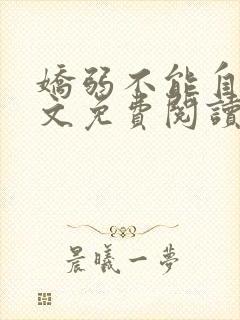 嬌弱不能自
文免費閱讀
晨曦一夢